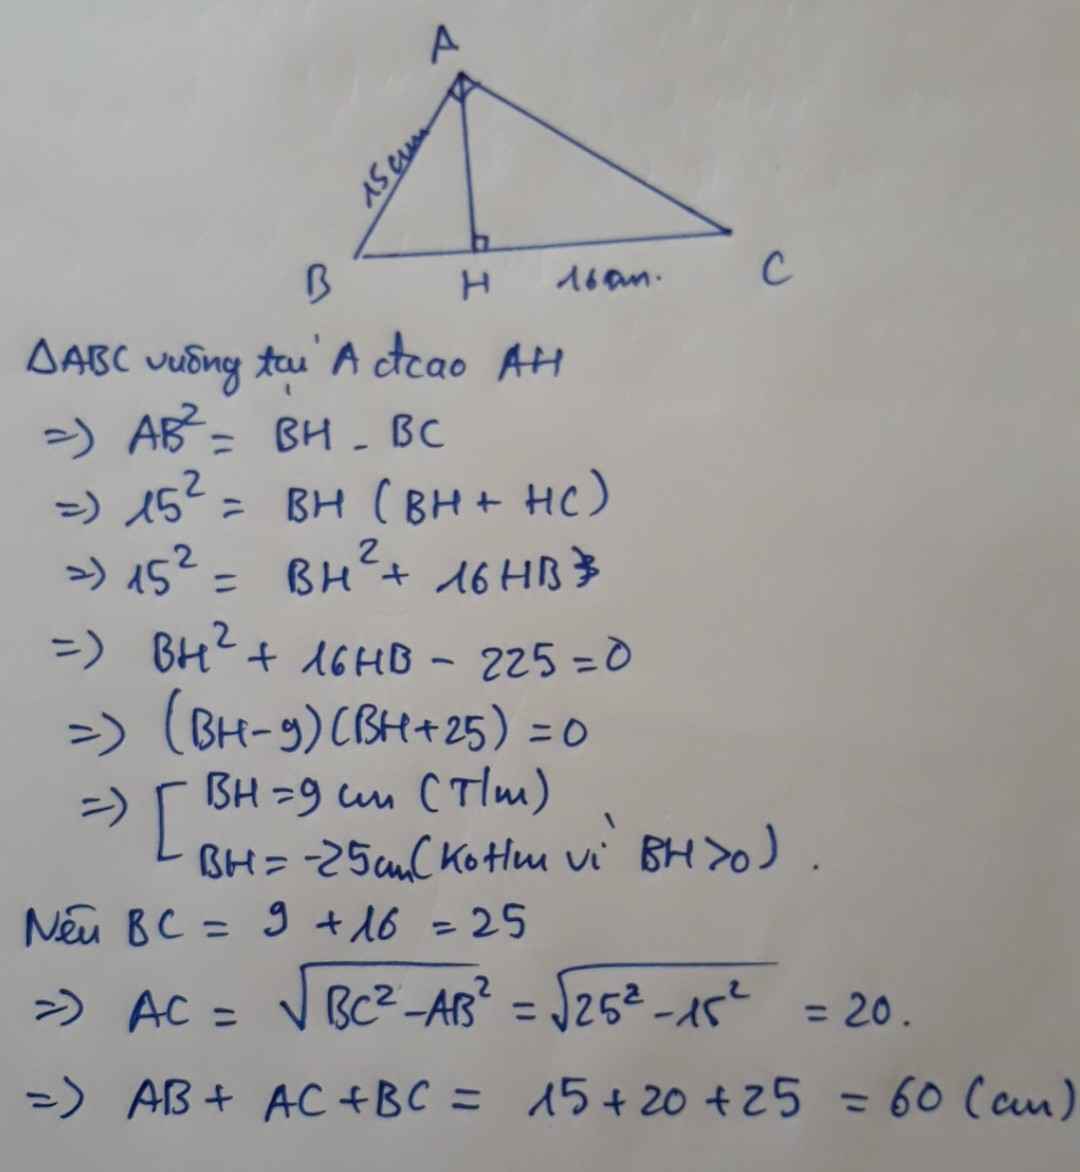 A
15cm
B H 16cm. C
ΔABC vuông tại A đcao AH
=> AB² = BH . BC
=> 15² = BH (BH + HC)
=> 15² = BH² + 16HB
=> BH² + 16HB - 225 = 0
=> (BH-9)(BH+25) = 0
=> [ BH = 9 cm (T/m)
BH = -25cm (Ko t/m vì BH>0) .
Nên BC = 9 + 16 = 25
=> AC = √BC² - AB² = √25² - 15² = 20.
=> AB + AC + BC = 15 + 20 + 25 = 60 (cm)